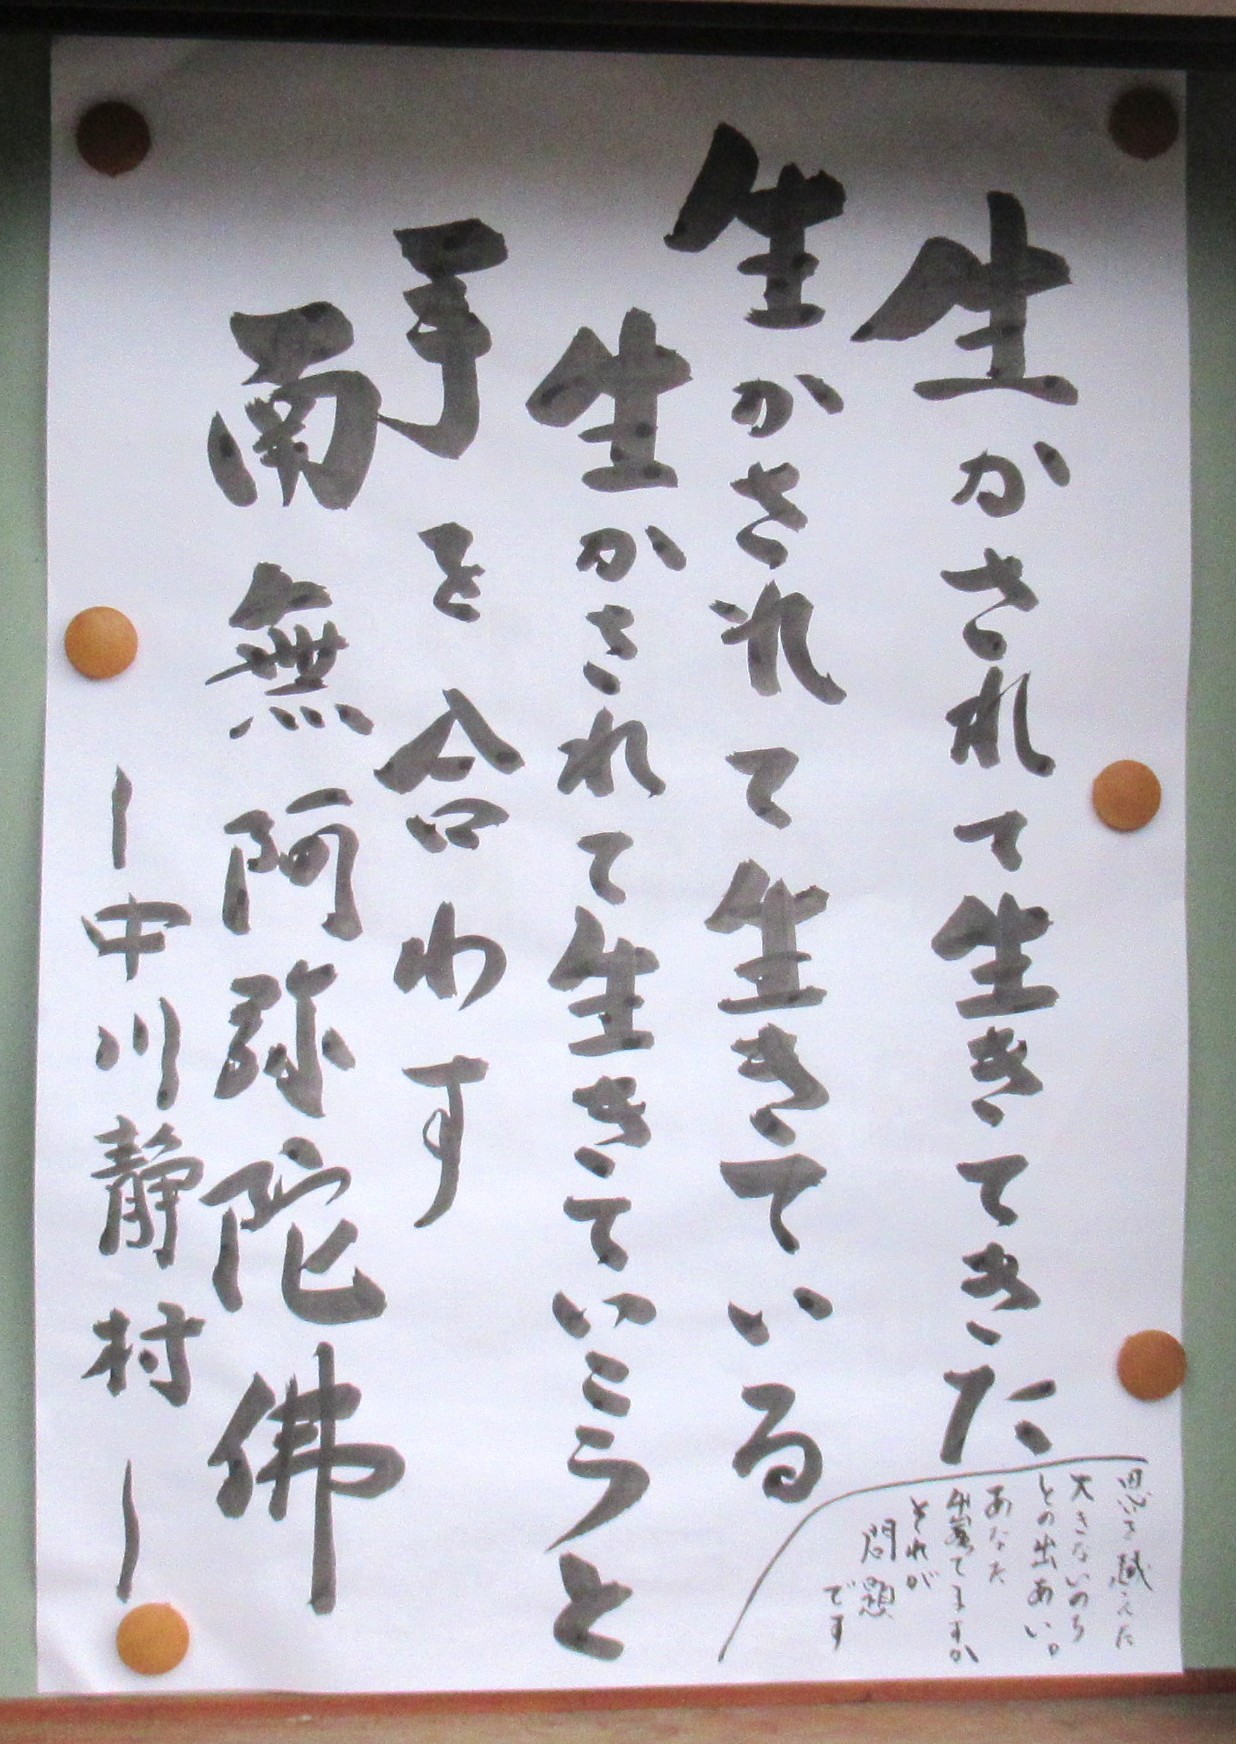 生かされて生きてきた
生かされて生きている
生かされて生きていこうと
手を合わす
南無阿弥陀佛
ー中川静村ー
思いを越えた
大きないのち
との出あい。
あなた
出遇てますか
それが
問題
です